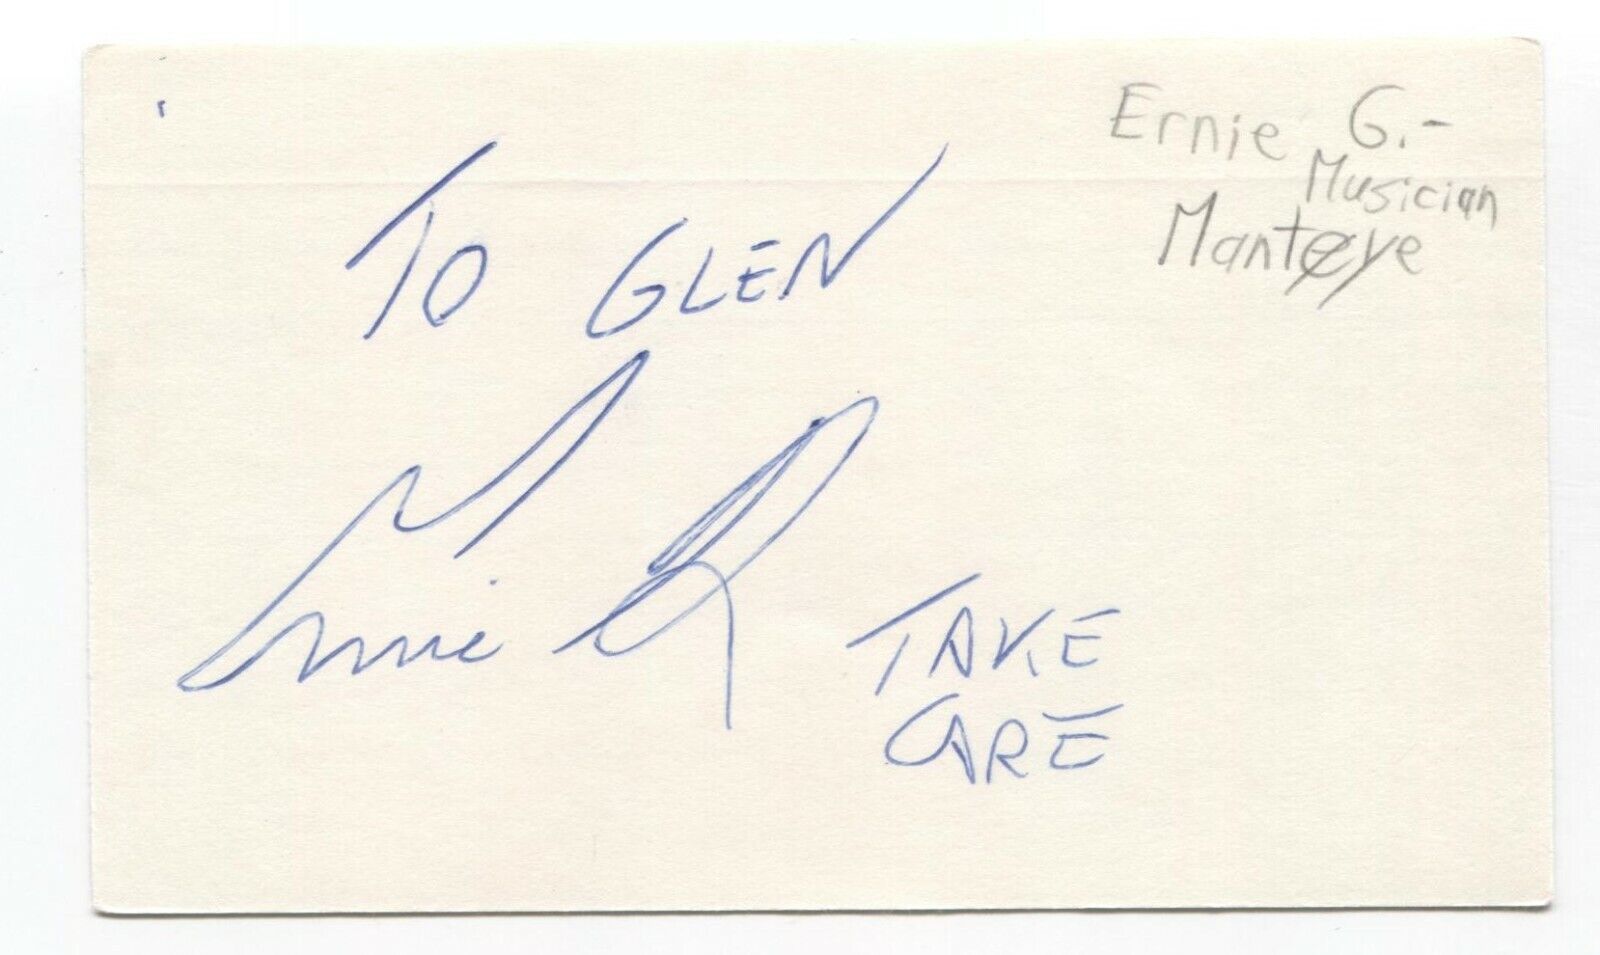 Ernie G.-
Musician
Manteye
TO GLEN
Ernie
TAKE
CARE